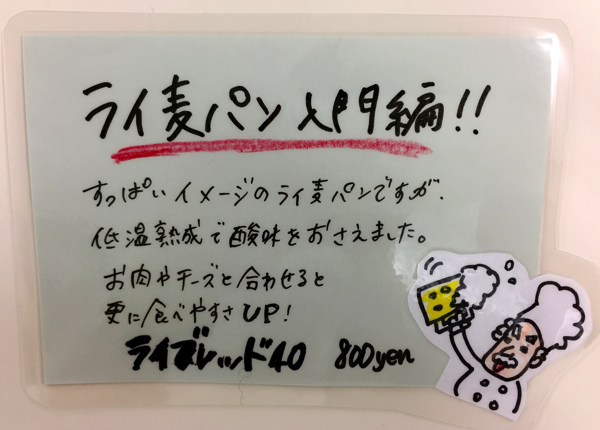 ライ麦パン入門編!!
すっぱいイメージのライ麦パンですが、
低温熟成で酸味をおさえました。
お肉やチーズと合わせると
更に食べやすさUP!
ライブレッド40 800yen